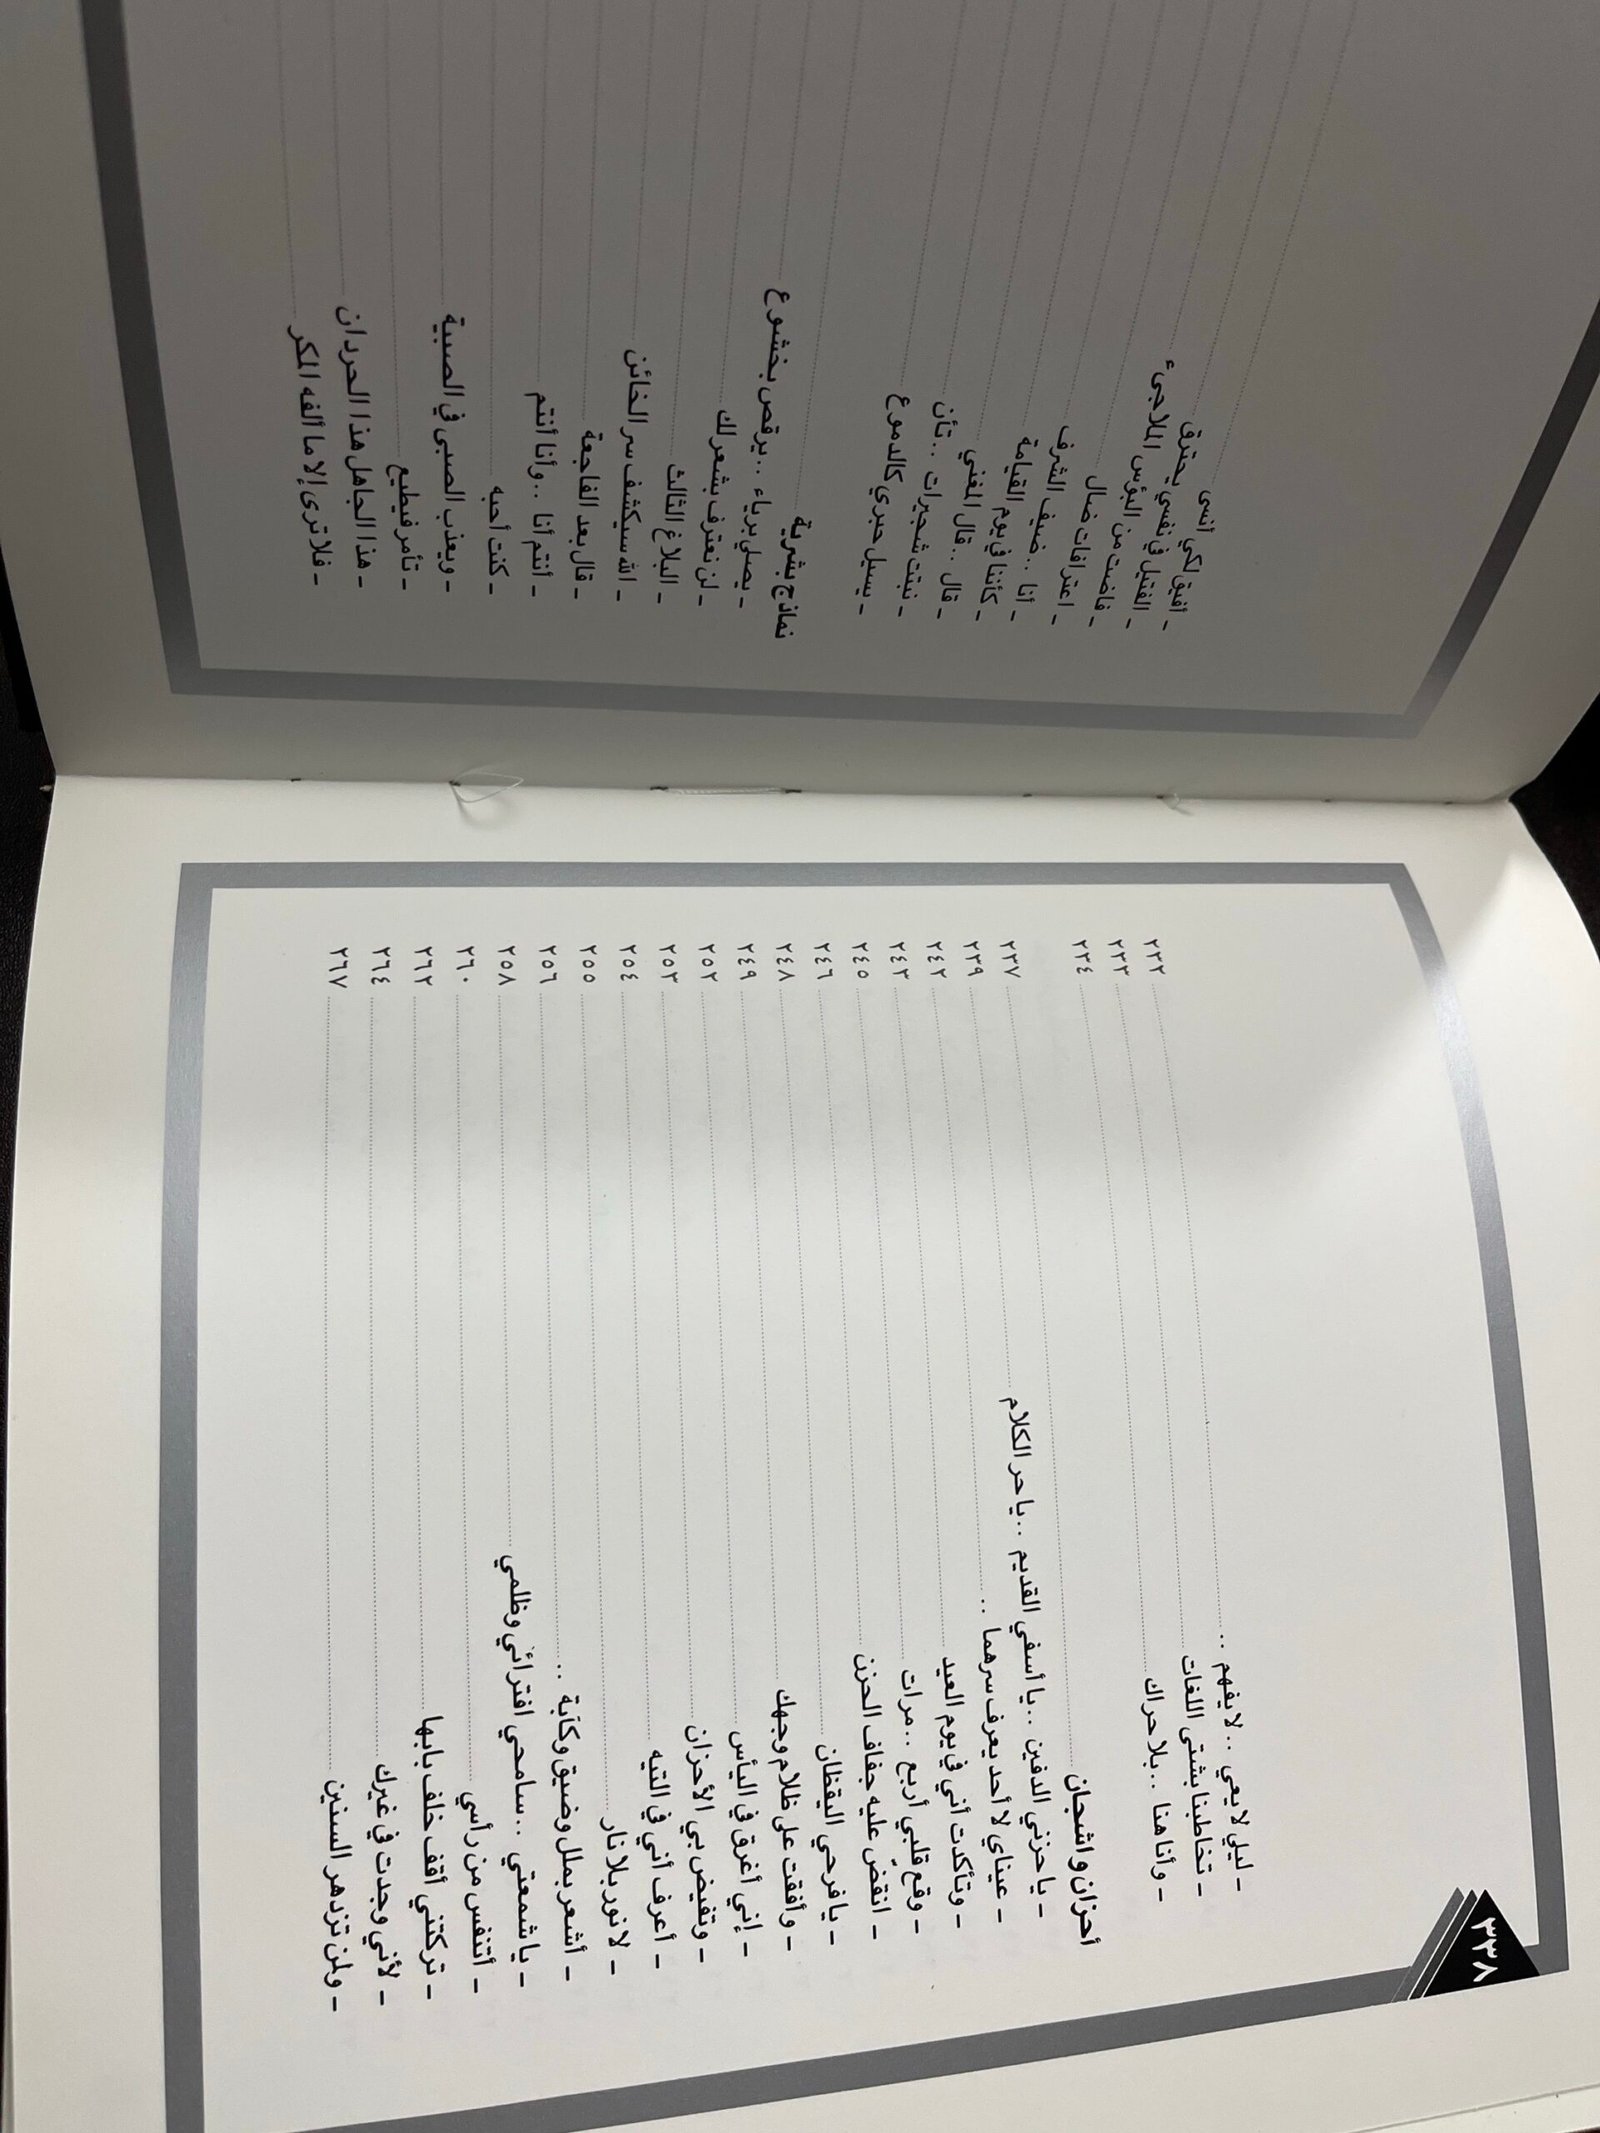 ٣٣٨
- ليلي لا يعي .. لا يفهم .. ٢٣٢
- تخاطبنا بشتى اللغات ٢٣٣
- وأنا هنا .. بلا حراك ٢٣٤
أحزان وأشجان ٢٣٧
- يا حزني الدفين .. يا أسفي القديم .. يا حر الكلام ٢٣٩
- عيناي لا أحد يعرف سرهما .. ٢٤٢
- وتأكدت أني في يوم العيد ٢٤٣
- وقع قلبي أربع .. مرات ٢٤٥
- انقضّ عليه جفاف الحزن ٢٤٦
- يا فرحي اليقظان ٢٤٨
- وأفقت على ظلام وجهك ٢٤٩
- إني أغرق في اليأس ٢٥٢
- وتفيض بي الأحزان ٢٥٣
- أعرف أني في التيه ٢٥٤
- لا نور بلا نار ٢٥٥
- أشعر بملل وضيق وكآبة .. ٢٥٦
- يا شمعتي .. سامحي افترائي وظلمي ٢٥٨
- أتنفس من رأسي ٢٦٠
- تركتني أقف خلف بابها ٢٦٢
- لأني وجدت في غيرك ٢٦٤
- ولن تزدهر السنين ٢٦٧
- أفيق لكي أنسى
- الفتيل في نفسي يحترق
- فاضت من البؤس اللاجىء
- اعترافات ضال
- أنا .. ضيف الشرف
- كأننا في يوم القيامة
- قال .. قال المغني
- نبتت شجيرات .. تأن
- يسيل حبري كالدموع
نماذج بشرية
- يصلي برياء .. يرقص بخشوع
- لن نعترف بشعر لك
- البلاغ الثالث
- الله سيكشف سر الخائن
- قال بعد الفاجعة
- أنتم أنا .. وأنا أنتم
- كنت أحبه
- ويعذب الصبي في الصبية
- تأمر فيطيع
- هذا الجاهل هذا الحردان
- فلا ترى إلا ما ألفه المكر